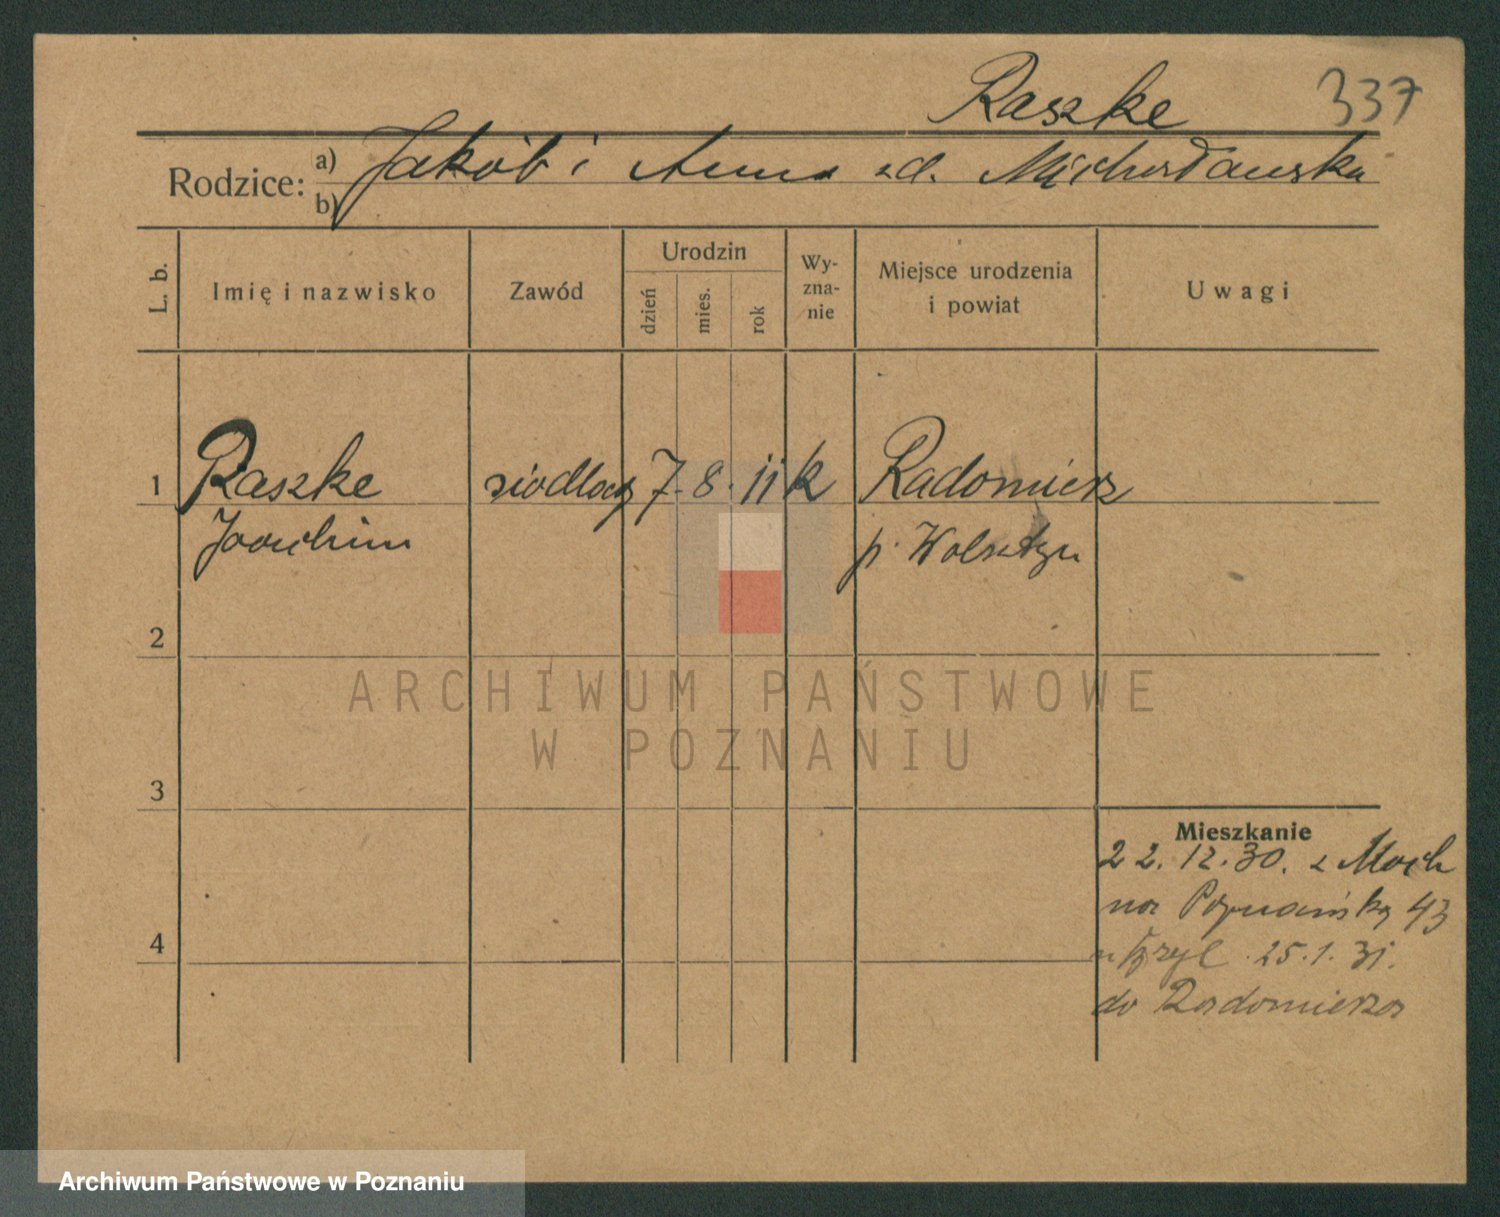 Raszke 337
Rodzice: a) Jakób i Anna zd. Michorźanska
b)
L. b. Imię i nazwisko Zawód Urodzin dzień mies. rok Wy-zna-nie Miejsce urodzenia i powiat Uwagi
1 Raszke siodlacz 7. 8. 11 k Radomierz
Joachim p. Wolsztyn
2
ARCHIWUM PAŃSTWOWE
W POZNANIU
3
Mieszkanie
22. 12. 30. z Moch
na Poznańską 43
25. 1. 31.
4
do Radomierza
Archiwum Państwowe w Poznaniu